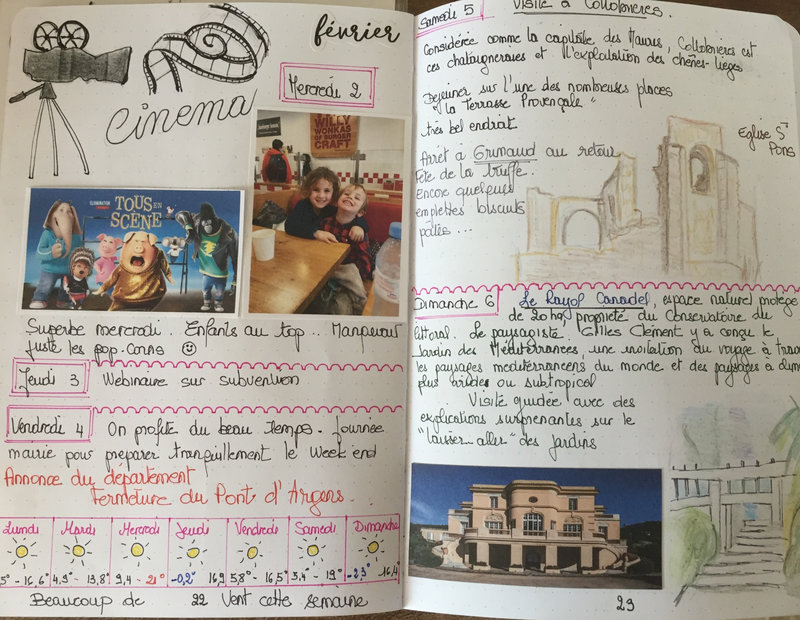 février
Mercredi 2
Cinema
WILLY
WONKAS
OF BURGER
CRAFT
ILLUMINATION
TOUS EN
SCÈNE
Superbe mercredi.. Enfants au top... Manquait
juste les pop-corns
Jeudi 3 Webinaire sur subvention
Vendredi 4 On profite du beau temps. Journée
mairie pour préparer tranquillement le week end
Annonce du département
Fermeture du Pont d'Argens.
Lundi Mardi Mercredi Jeudi Vendredi Samedi Dimanche
5° - 16,6° 4,9° - 13,8° 9,4 - 21° -0,2° 16,9 5,8° - 16,5° 3,4° - 19° -2,3° - 16,4°
Beaucoup de Vent cette semaine
22
Samedi 5 Visite à Collobrières.
Considérée comme la capitale des Maures, Collobrières est
ces chataigneraies et l'exploitation des chênes-lièges
Dejeiner sur l'une des nombreuses places
"la Terrasse Provençale"
très bel endroit
Eglise St
Pons
Arrêt à Grimaud au retour
Fête de la truffe.
Encore quelques
emplettes biscuits
pâtes...
Dimanche 6 Le Rayol Canadel, espace naturel protégé
de 20ha, propriété du Conservatoire du
littoral. Le paysagiste Gilles Clément y a conçu le
Jardin des Méditerranées, une invitation du voyage à trav
les paysages mediterraneens du monde et des paysages à clim
plus arides ou subtropical
Visite guidée avec des
explications surprenantes sur le
"laisser-aller" des Jardins
23